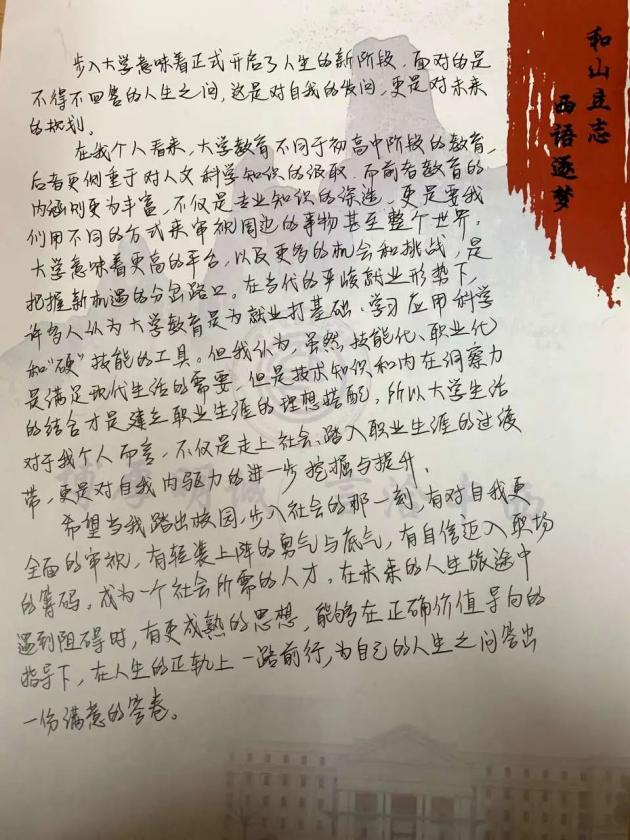 和山立志
西语逐梦
步入大学意味着正式开启了人生的新阶段,面对的是
不得不回答的人生之问,这是对自我的发问,更是对未来
的规划。
在我个人看来,大学教育不同于初高中阶段的教育,
后者更侧重于对人文科学知识的汲取,而前者教育的
内涵则更为丰富,不仅是专业知识的深造,更是要我
们用不同的方式来审视周边的事物甚至整个世界。
大学意味着更高的平台,以及更多的机会和挑战,是
把握新机遇的分岔路口。在当代的严峻就业形势下,
许多人认为大学教育是为就业打基础、学习应用科学
和“硬”技能的工具。但我认为,虽然技能化、职业化
是满足现代生活的需要,但是技术知识和内在洞察力
的结合才是建立职业生涯的理想搭配,所以大学生活
对于我个人而言,不仅是走上社会、踏入职业生涯的过渡
带,更是对自我内驱力的进一步挖掘与提升。
希望当我踏出校园,步入社会的那一刻,有对自我更
全面的审视,有轻装上阵的勇气与底气,有自信迈入职场
的筹码,成为一个社会所需的人才。在未来的人生旅途中
遇到阻碍时,有更成熟的思想,能够在正确价值导向的
指导下,在人生的正轨上一路前行,为自己的人生之问答出
一份满意的答卷。